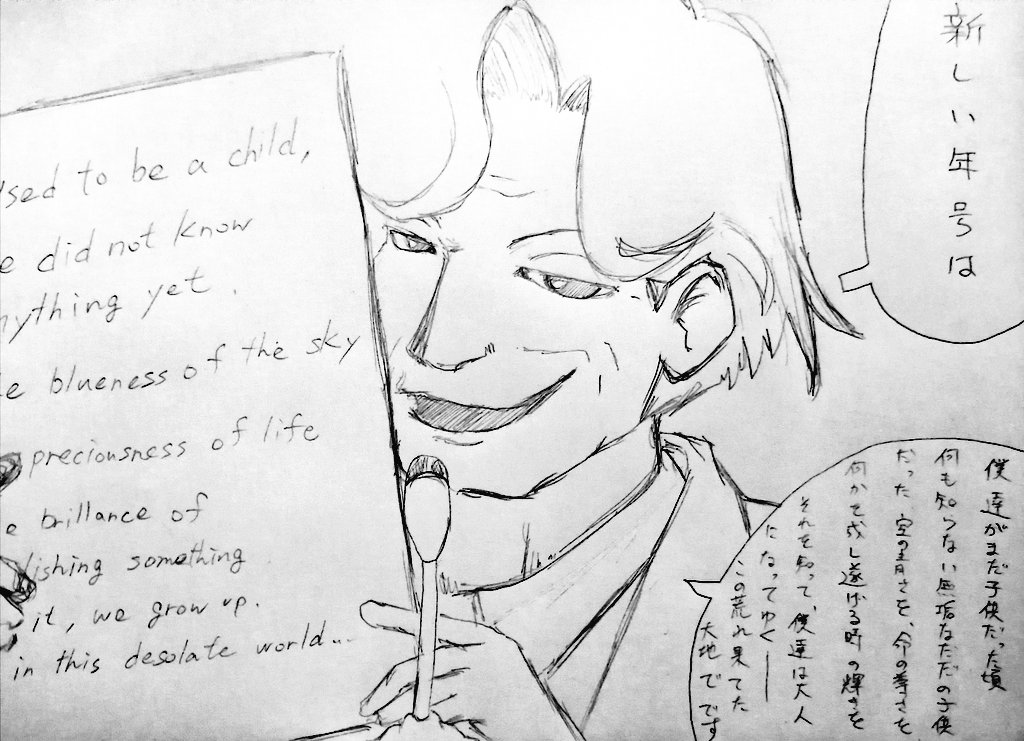 新しい年号は
used to be a child,
e did not know
nything yet.
e blueness of the sky
preciousness of life
e brillance of
lishing something
it, we grow up.
in this desolate world...
僕達がまだ子供だった頃
何も知らない無垢なただの子供
だった 空の青さを、命の尊さを
何かを成し遂げる時の輝きを
それを知って、僕達は大人
になってゆく——
この荒れ果てた
大地でです